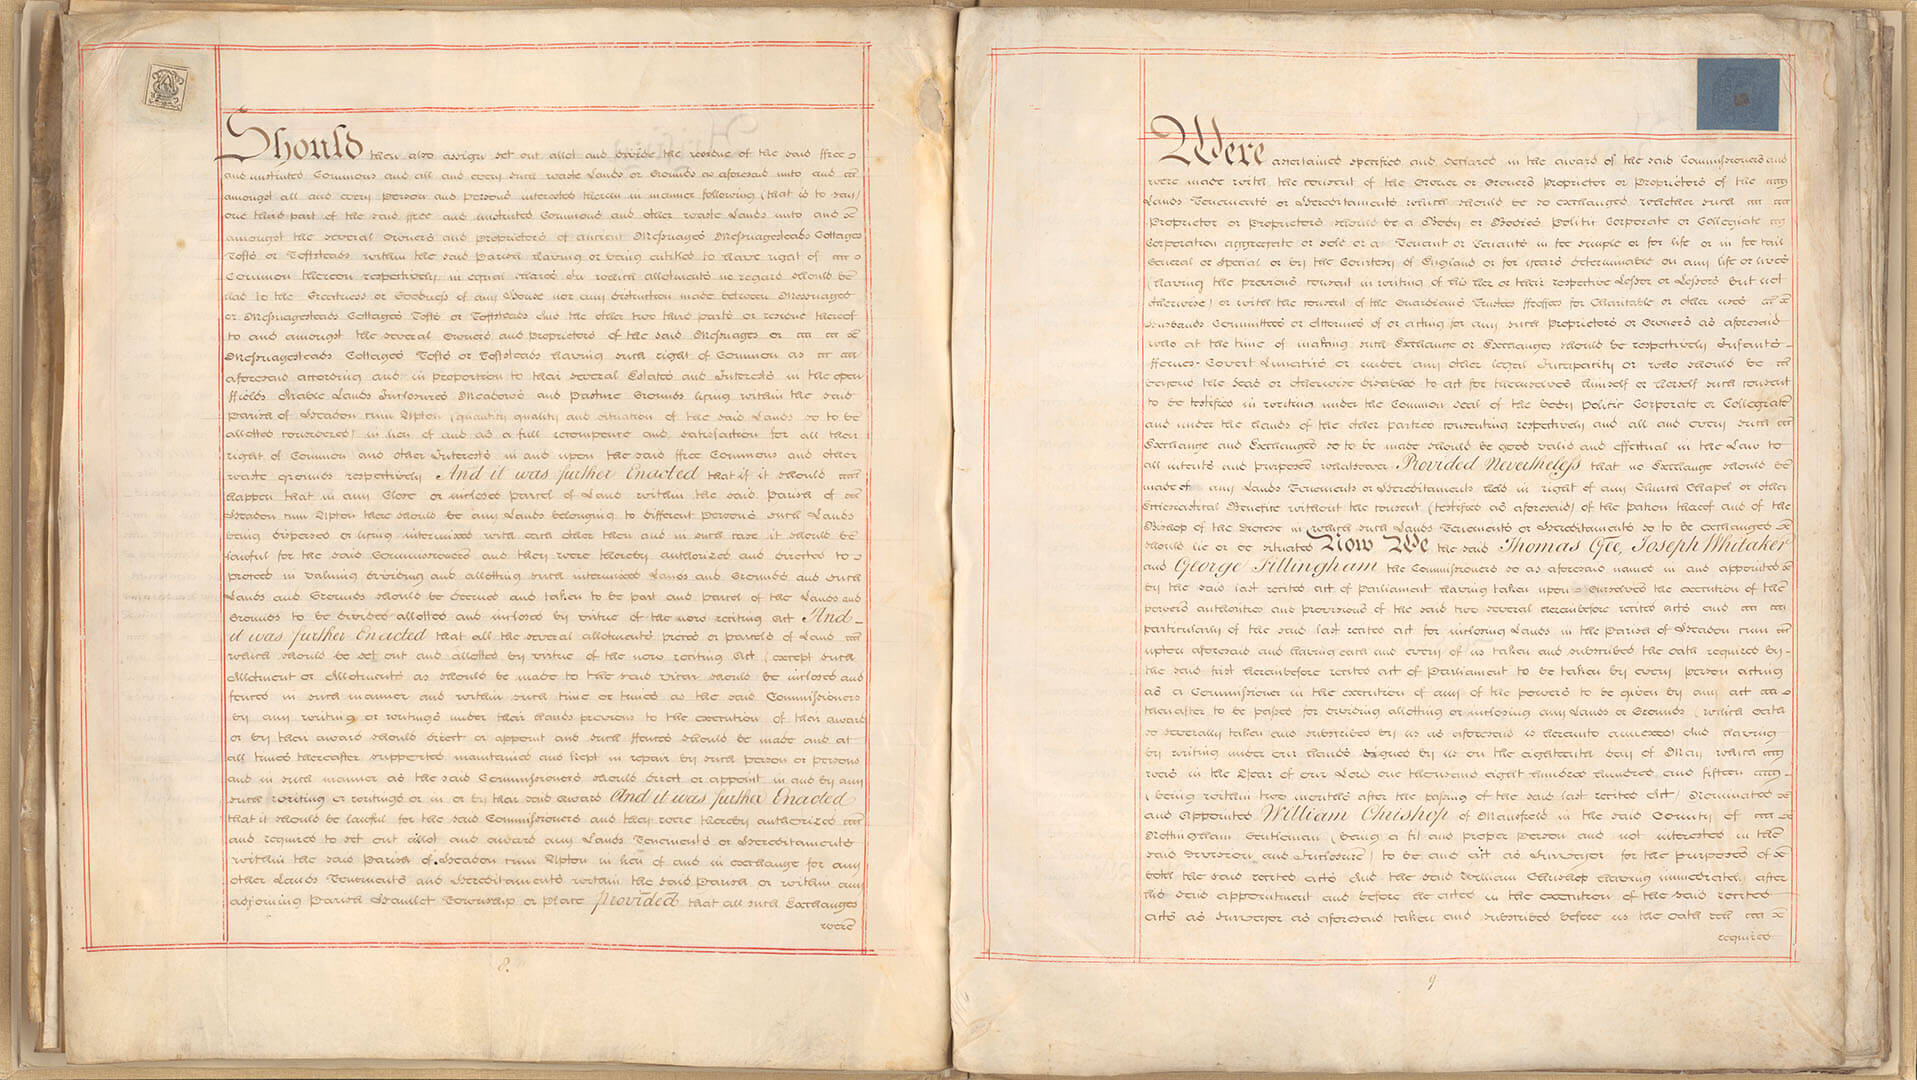 Should then also assign set out allot and divide the residue of the said ffree
and unstinted Commons and all and every such waste Lands or Grounds as aforesaid unto and
amongst all and every Person and Persons interested therein in manner following (that is to say)
one third part of the said ffree and unstinted Commons and other waste Lands unto and
amongst the several Owners and proprietors of ancient Messuages Messuagesteads Cottages
Tofts or Toftsteads within the said Parish having or being entitled to have right of
Common thereon respectively in equal shares In which allotments no regard should be
had to the Greatness or Goodness of any House nor any distinction made between Messuages
or Messuagesteads Cottages Tofts or Toftsteads And the other two third parts or residue thereof
to and amongst the several Owners and proprietors of the said Messuages or
Messuagesteads Cottages Tofts or Toftsteads having such right of Common as
aforesaid according and in proportion to their several Estates and Interests in the open
ffields Arable Lands Inclosures Meadows and Pasture Grounds lying within the said
Parish of Headon cum Upton (quantity quality and situation of the said Lands so to be
allotted considered) in lieu of and as a full recompence and satisfaction for all their
right of Common and other Interests in and upon the said ffree Commons and other
waste grounds respectively And it was further Enacted that if it should
happen that in any Close or inclosed parcel of Land within the said Parish of
Headon cum Upton there should be any Lands belonging to different Persons such Lands
being dispersed or lying intermixed with each other then and in such case it should be
lawful for the said Commissioners and they were thereby authorized and directed to
proceed in valuing dividing and allotting such intermixed Lands and Grounds and such
Lands and Grounds should be deemed and taken to be part and parcel of the Lands and
Grounds to be divided allotted and inclosed by virtue of the now reciting Act And
it was further Enacted that all the several allotments pieces or parcels of Land
which should be set out and allotted by virtue of the now reciting Act (except such
Allotment or Allotments as should be made to the said Vicar should be inclosed and
fenced in such manner and within such time or times as the said Commissioners
by any writing or writings under their hands previous to the execution of their award
or by their award should direct or appoint and such ffences should be made and at
all times thereafter supported maintained and kept in repair by such person or persons
and in such manner as the said Commissioners should direct or appoint in and by any
such writing or writings or in or by their said award And it was further Enacted
that it should be lawful for the said Commissioners and they were thereby authorized
and required to set out allot and award any Lands Tenements or Hereditaments
within the said Parish of Headon cum Upton in lieu of and in exchange for any
other Lands Tenements and Hereditaments within the said Parish or within any
adjoining Parish Hamlet Township or Place Provided that all such Exchanges
were
8.
Were ascertained specified and declared in the award of the said Commissioners and
were made with the consent of the Owner or Owners Proprietor or Proprietors of the
Lands Tenements or Hereditaments which should be so exchanged whether such
Proprietor or Proprietors should be a Body or Bodies Politic Corporate or Collegiate
Corporation aggregate or sole or a Tenant or Tenants in fee simple or for life or in fee tail
General or Special or by the Courtesy of England or for years determinable on any life or lives
(having the previous consent in writing of his her or their respective Lessor or Lessors but not
otherwise) or with the consent of the Guardians Trustees ffeoffees for Charitable or other uses
Husbands Committees or Attornies of or acting for any such Proprietors or Owners as aforesaid
who at the time of making such Exchange or Exchanges should be respectively Infants
ffemes-Covert Lunatics or under any other legal Incapacity or who should be
beyond the Seas or otherwise disabled to act for themselves himself or herself such consent
to be testified in writing under the Common Seal of the body Politic Corporate or Collegiate
and under the hands of the other parties consenting respectively and all and every such
Exchange and Exchanges so to be made should be good valid and effectual in the Law to
all intents and purposes whatsoever Provided Nevertheless that no Exchange should be
made of any Lands Tenements or Hereditaments held in right of any Church Chapel or other
Ecclesiastical Benefice without the consent (testified as aforesaid) of the patron thereof and of the
Bishop of the Diocese in which such Lands Tenements or Hereditaments so to be exchanged
should lie or be situated Now We the said Thomas Gee, Joseph Whitaker
and George Fillingham the Commissioners so as aforesaid named in and appointed
by the said last recited Act of Parliament having taken upon Ourselves the execution of the
powers authorities and provisions of the said two several hereinbefore recited Acts and
particularly of the said last recited Act for inclosing Lands in the Parish of Headon cum
Upton aforesaid and having each and every of us taken and subscribed the oath required by
the said first hereinbefore recited Act of Parliament to be taken by every person acting
as a Commissioner in the execution of any of the powers to be given by any Act
thereafter to be passed for dividing allotting or inclosing any Lands or Grounds (which oath
so severally taken and subscribed by us as aforesaid is hereunto annexed) And having
by writing under our hands signed by us on the eighteenth day of May which
was in the Year of our Lord one thousand eight hundred and fifteen
(being within two months after the passing of the said last recited Act) Nominated
and Appointed William Chrishop of Mansfield in the said County of
Nottingham Gentleman (being a fit and proper Person and not interested in the
said Division and Inclosure) to be and act as Surveyor for the purposes of
both the said recited Acts And the said William Chrishop having immediately after
his said appointment and before he acted in the execution of the said recited
Acts as Surveyor as aforesaid taken and subscribed before us the oath
required
9